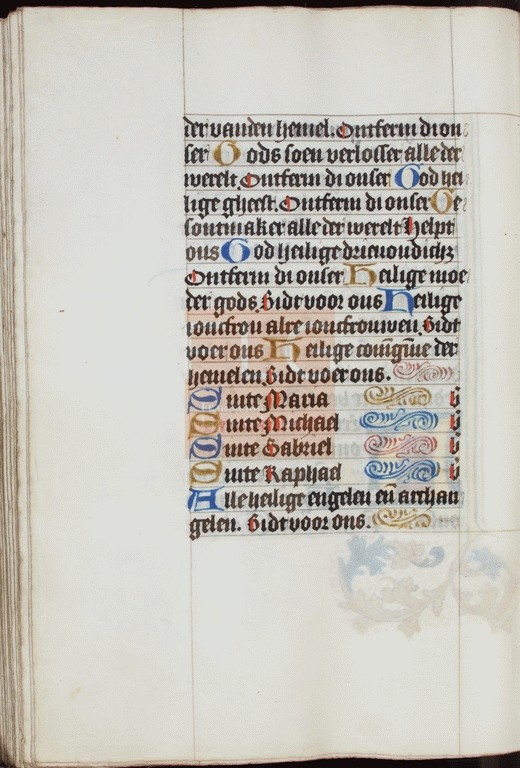 der vanden hemel. Ontferm di on
ser God s soen verlosser alle der
werelt. Ontferm di onser God hei
lige gheest. Ontferm di onser Ge
sontmaker alle der werelt helpt
ons God heilige drienoudich3
Ontferm di onser Heilige moe
der gods. Bidt voor ons Heilige
ioncfrou alre ioncfrouwen. Bidt
voer ons Heilige coningīne der
hemelen. Bidt voer ons.
Sinte Maria b
Sinte Michael b
Sinte Gabriel b
Sinte Raphael b
Alle heilige engelen eñ archan
gelen. Bidt voor ons.